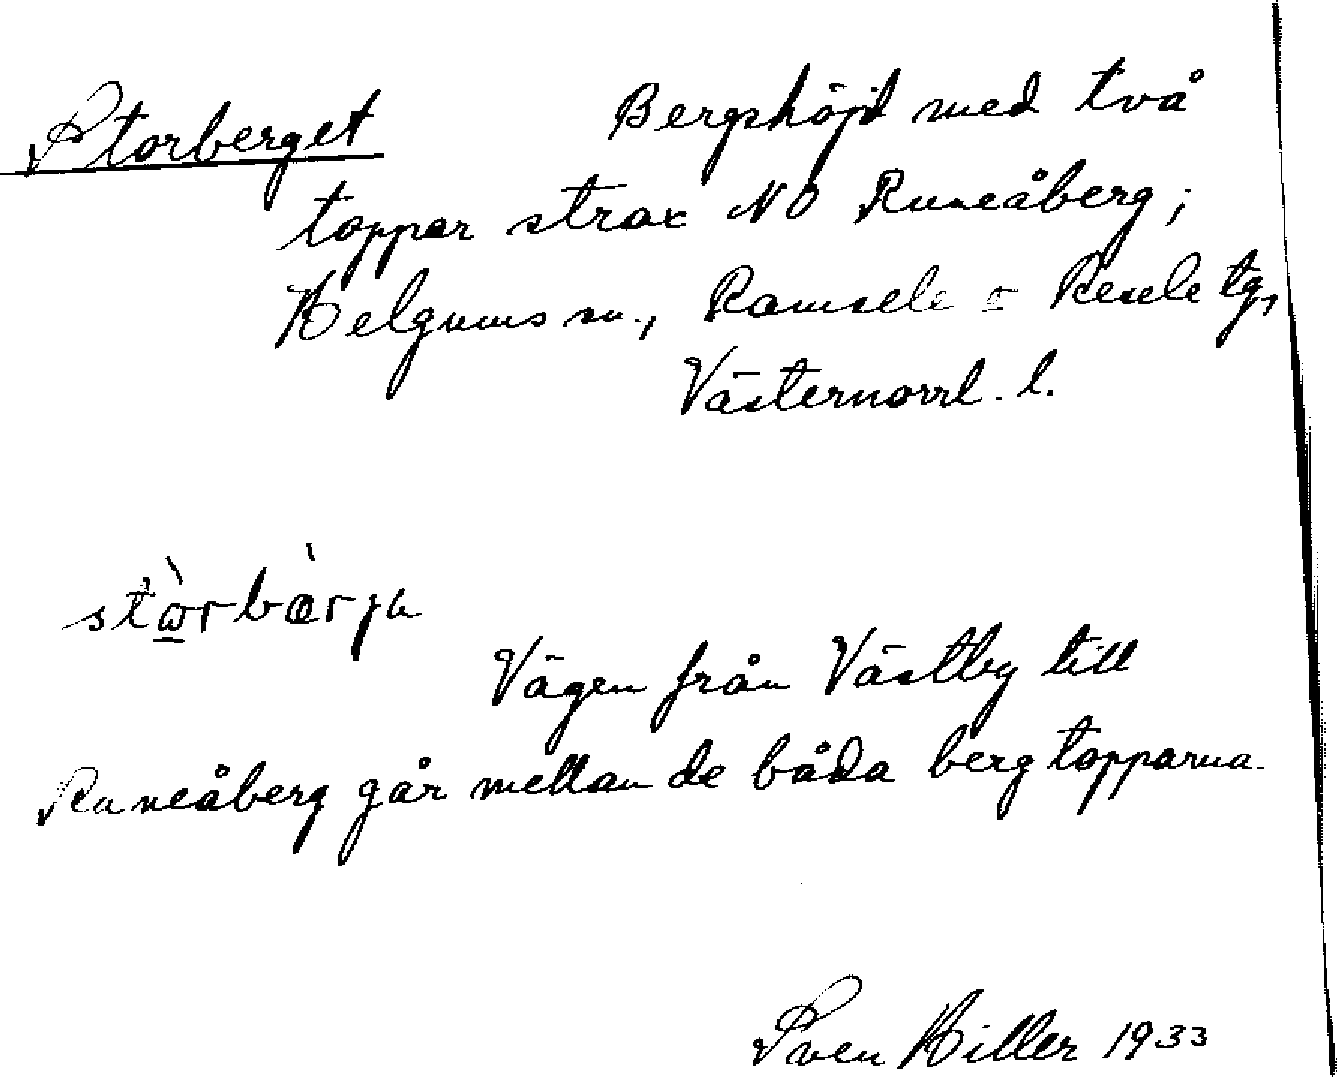 Storberget Bergshöjd med två
toppar strax NO Runeåberg;
Helgums sn., Ramsele o Resele tg,
Västernorrl. l.
stὼ̲rbὰrja
Vägen från Västby till
Runeåberg går mellan de båda bergtopparna.
Sven Hiller 1933